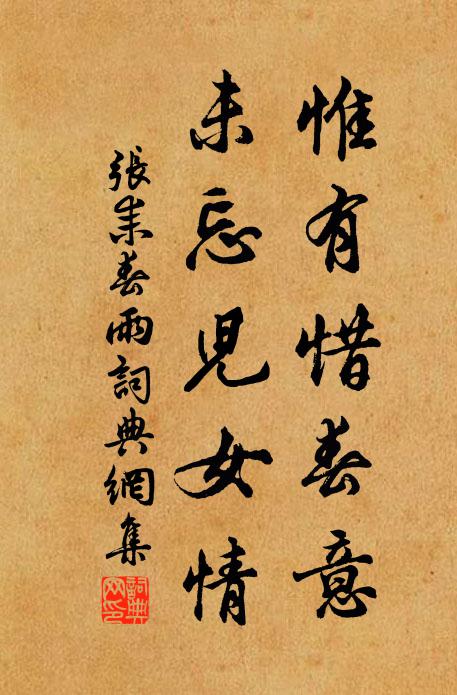 惟有惜春意
未忘兒女情
張耒春雨詞典網集
詞典網印